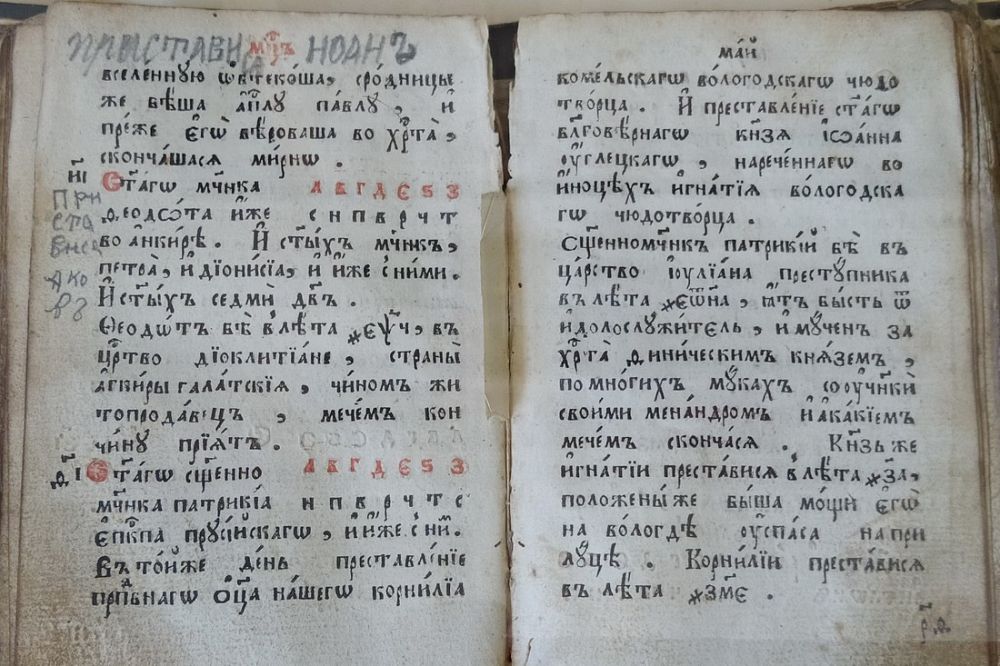 приставися НОАНЪ
мц҃ъ
вселенную ѡ҆бтеко́ша, сро́дницы
же бѣ́ша а҆п҃лу па́влу, и҆
пре́же є҆гѡ̀ вѣ́роваша во хр҃та̀,
сконча́шася ми́рнѡ.
и҃і
Ст҃а́гѡ мч҃нка А В Г Д Є Ѕ З
ѳеодѡ́та и҆́же С Н П В Р Ч Т
во а҆нки́рѣ. И҆ ст҃ы́хъ мч҃нкъ,
петра̀, и҆ дїони́сїа, и҆ и҆́же с ни́ми.
И҆ ст҃ы́хъ седмѝ дв҃ъ.
Ѳеодѡ́тъ бѣ̀ в лѣ́та ҂єѱ҃ч, въ
цр҃тво дїоклитїа́не, страны̀
а҆гки́ры гала́тскїѧ, чи́номъ жи
топрода́вецъ, мече́мъ кон
чи́ну прїѧ́тъ.
При
ста
висѧ
Ѧко
въ
ѳ҃і
Ст҃а́гѡ сщ҃е́нно А В Г Д Є Ѕ З
мч҃нка патрикі́а Н П В Р Ч Т С
є҆пкⷭ҇па пруси́йскагѡ, и҆ и҆́же с ни́м.
Въ то́йже де́нь преставле́нїе
прпⷣбнагѡ ѻ҆ц҃а на́шегѡ корни́лїа
ма́й
коме́льскагѡ во́логодскагѡ чюдо
тво́рца. И҆ преставле́нїе ст҃а́гѡ
бл҃гове́рнагѡ кн҃зѧ і҆ѡа́нна
ѹ҆́глецкагѡ, нарече́ннагѡ во
и҆́ноцехъ и҆гна́тїѧ во́логодска
гѡ чюдотво́рца.
Сщ҃енномч҃нкъ патрикі́й бѣ̀ въ
ца́рство і҆ѹлїа́на престу́пника
в лѣ́та ҂єѿ҃на, ꙗ҆́тъ бы́сть ѿ
и҆долослужи́тель, и҆ му́ченъ за
хр҃та̀ ѳини́ческимъ кнѧ́земъ,
по мно́гихъ му́кахъ со ѹ҆ч҃нкѝ
свои́ми мена́ндромъ и҆ а҆ка́кїемъ
мече́мъ сконча́сѧ. Кн҃зь же
и҆гна́тїи преста́висѧ в лѣ́та ҂з҃ла,
положены́ же бы́ша мо́щи є҆гѡ̀
на во́логдѣ ѹ҆ спа́са на при
лу́цѣ. Корни́лїи преста́висѧ
в лѣ́та ҂зм҃є.